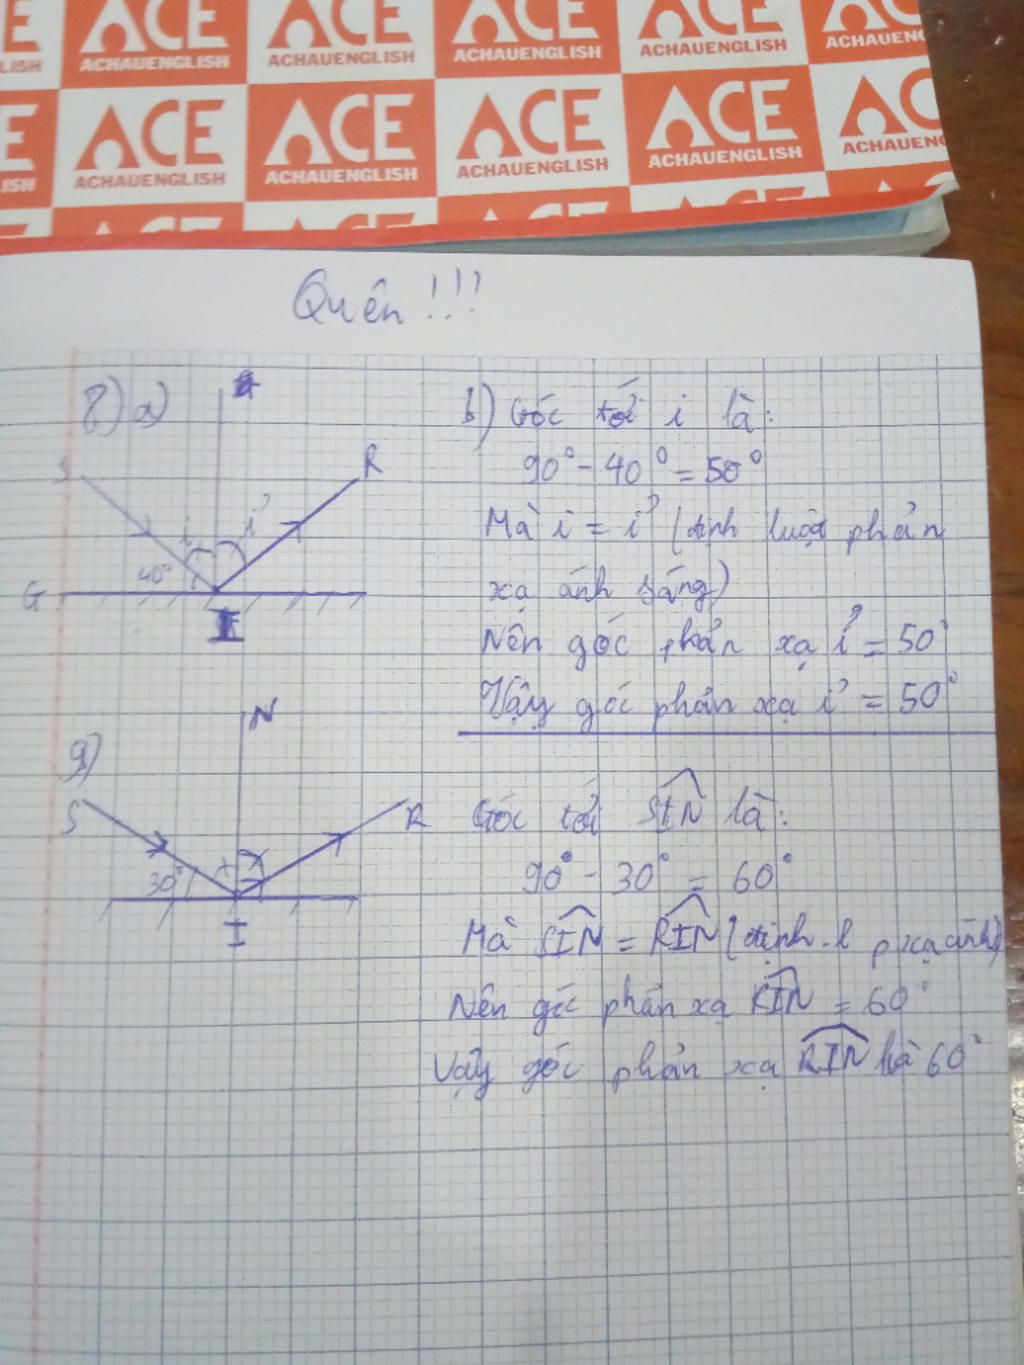 ACE ACE ACE ACE ACE
ISH ACHAUENGLISH ACHAUENGLISH ACHAUENGLISH ACHAUENGLISH ACHAUENG
E ACE ACE ACE ACE AC
ISH ACHAUENGLISH ACHAUENGLISH ACHAUENGLISH ACHAUENGLISH ACHAUEN
Quên!!!
8) a)
S R
i i'
40°
G
I
b) Góc tới i là:
90° - 40° = 50°
Mà i = i' (định luật phản
xạ ánh sáng)
Nên góc phản xạ i' = 50°
Vậy góc phản xạ i' = 50°
9)
N
S R
30°
I
Góc tới SIN là:
90° - 30° = 60°
Mà SIN = RIN (định l p xạ ánh)
Nên góc phản xạ RIN = 60°
Vậy góc phản xạ RIN là 60°